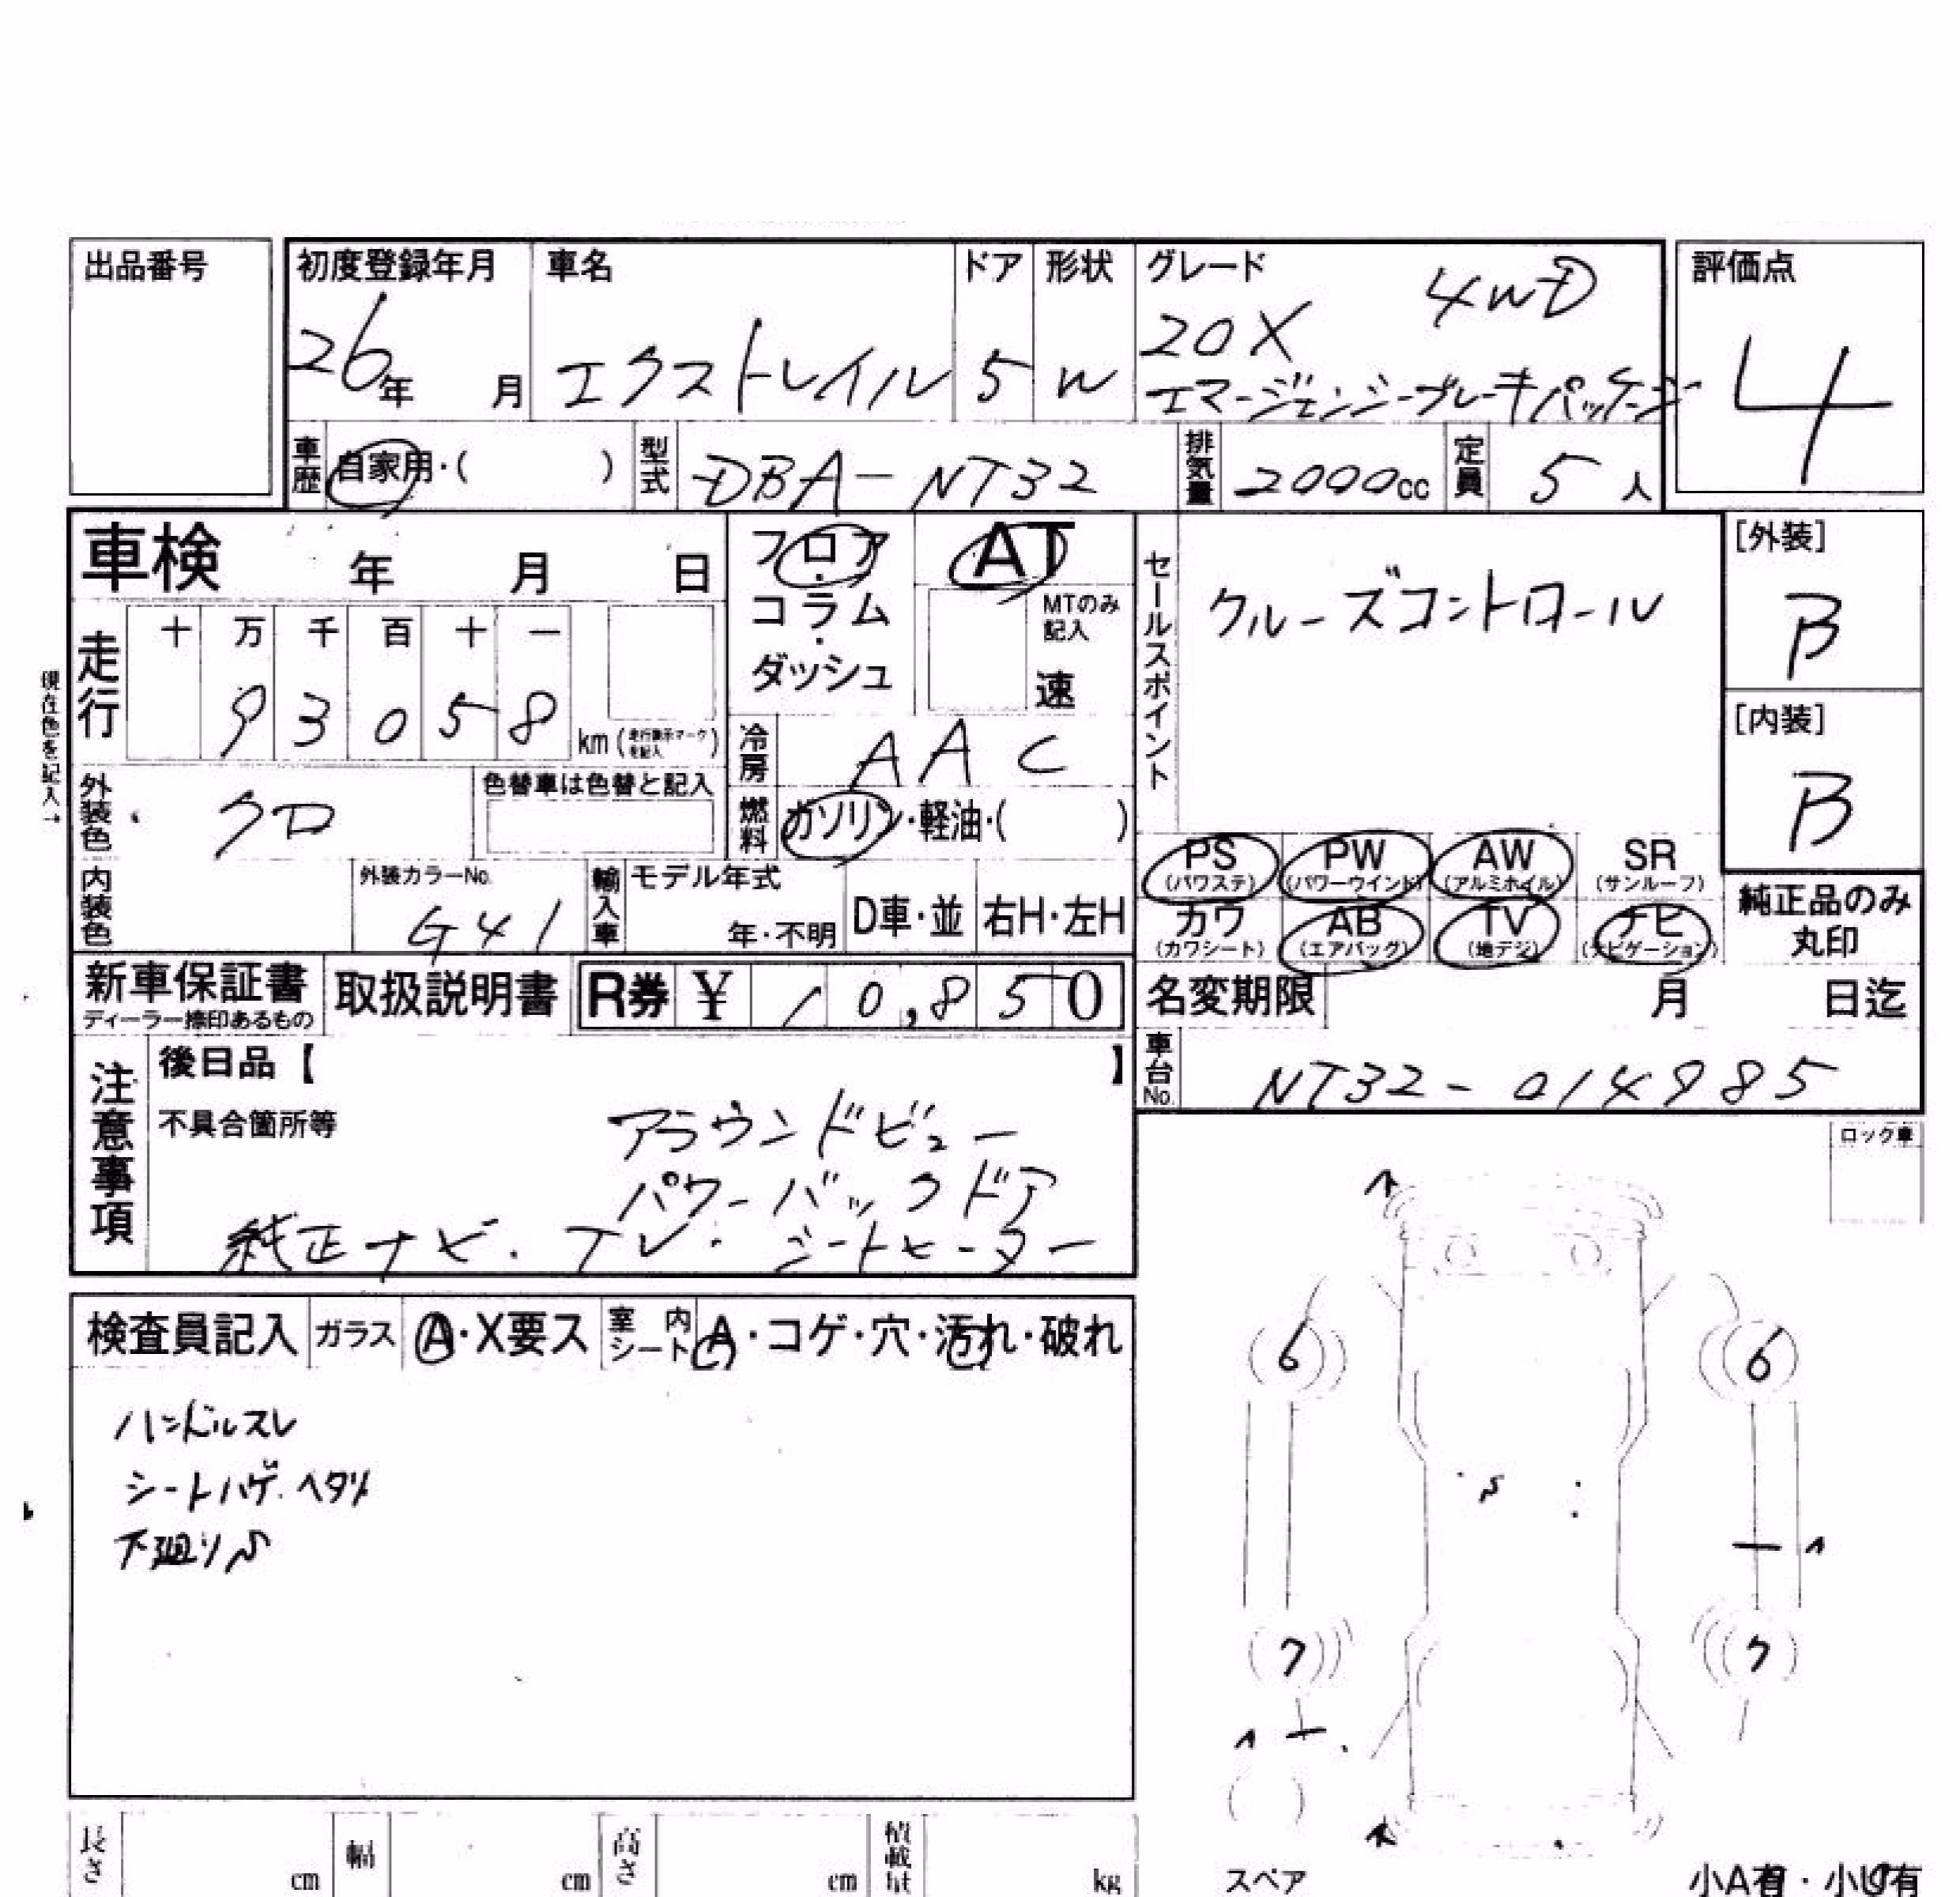 出品番号
初度登録年月
26年 月
車名
エクストレイル
ドア
5
形状
W
グレード
20X 4WD
エマージェンシーブレーキパッケージ
評価点
4
車歴 自家用・( )
型式 DBA-NT32
排気量 2000cc
定員 5人
車検 年 月 日
フロア
コラム
ダッシュ
AT
MTのみ
記入
速
走行
十 万 千 百 十 一
9 3 0 5 8
km (走行表示マーク
を記入)
現在色を記入→
外装色 クロ
色替車は色替と記入
内装色
外装カラーNo.
G41
冷房 AAC
燃料 ガソリン・軽油・( )
輸入車 モデル年式
年・不明
D車・並 右H・左H
セールスポイント
クルーズコントロール
[外装]
B
[内装]
B
PS
(パワステ)
PW
(パワーウインド)
AW
(アルミホイル)
SR
(サンルーフ)
カワ
(カワシート)
AB
(エアバッグ)
TV
(地デジ)
ナビ
(ナビゲーション)
純正品のみ
丸印
新車保証書
ディーラー捺印あるもの
取扱説明書
R券 ¥ 10,850
名変期限 月 日迄
車台No. NT32-014985
注意事項
後日品【 】
不具合箇所等
アラウンドビュー
パワーバックドア
純正ナビ.TV.シートヒーター
ロック車
検査員記入 ガラス A・X要ス 室内シート A・コゲ・穴・汚れ・破れ
ハンドルスレ
シートハゲ.ヘタリ
下廻りS
6 6
7 7
長さ cm 幅 cm 高さ cm 積載量 kg
スペア
小A有・小U有